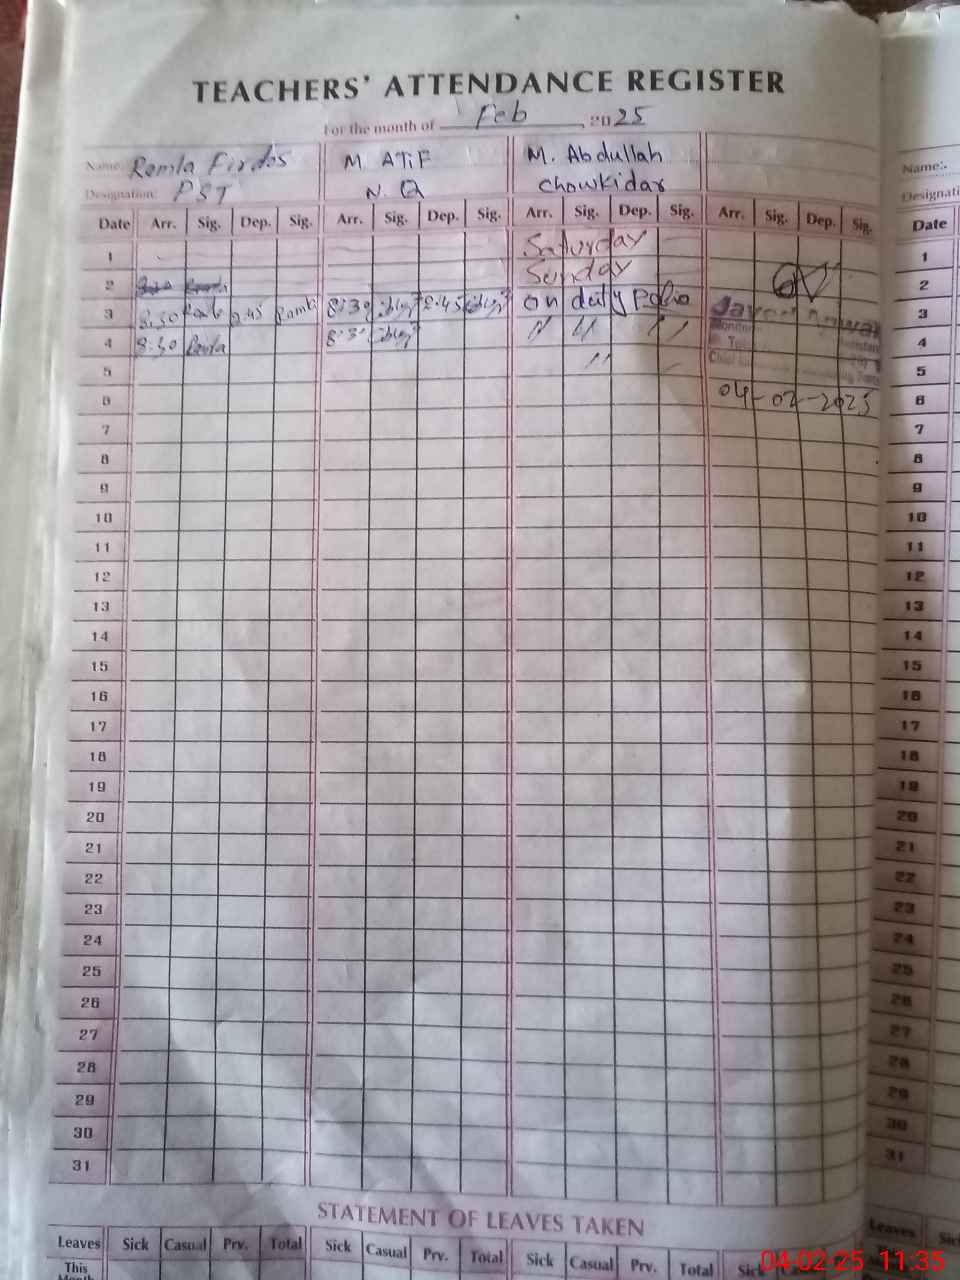 TEACHERS' ATTENDANCE REGISTER
For the month of Feb, 2025
Name: Romla Firdos M. ATiF M. Abdullah Name:-
Designation: PST N. Q Chowkidar Designati
Date Arr. Sig. Dep. Sig. Arr. Sig. Dep. Sig. Arr. Sig. Dep. Sig. Arr. Sig. Dep. Sig. Date
1 Saturday 1
2 Sunday 2
3 8:30 2:45 8:30 2:45 on duty Polio 3
4 8:30 Romla 8:30 〃 〃 〃 4
5 〃 5
6 04-02-2025 6
7 7
8 8
9 9
10 10
11 11
12 12
13 13
14 14
15 15
16 16
17 17
18 18
19 19
20 20
21 21
22 22
23 23
24 24
25 25
26 26
27 27
28 28
29 29
30 30
31 31
STATEMENT OF LEAVES TAKEN
Leaves Sick Casual Prv. Total Sick Casual Prv. Total Sick Casual Prv. Total Sick Leaves Sic
This
Month
04-02-25 11:35